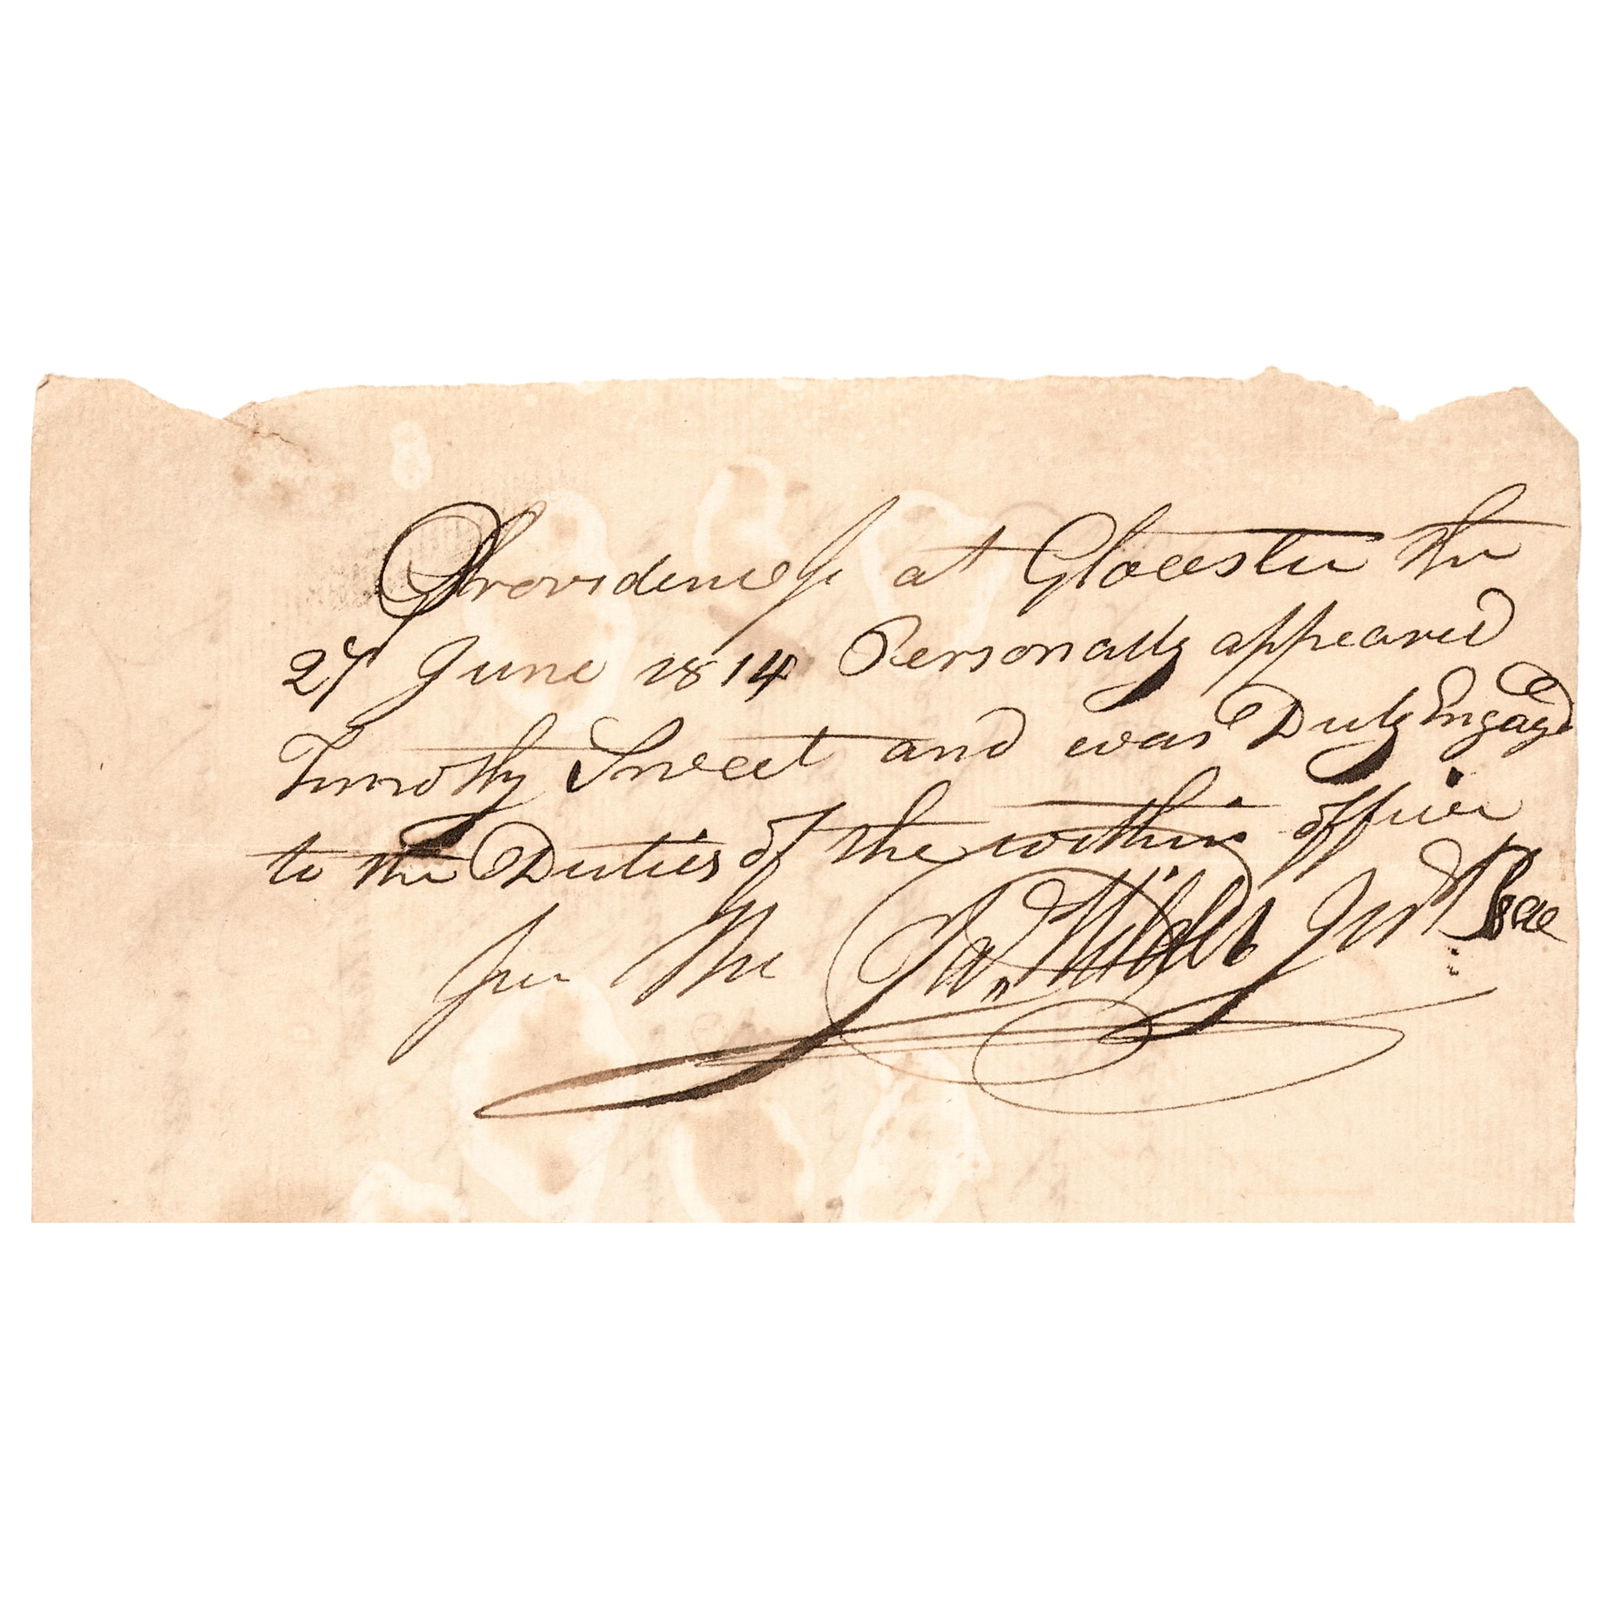 Providence Sc at Glocester the
27 June 1814 Personally appeared
Timothy Sweet and was Duly Engagd
to the Duties of the within office
per Me Jas Wilder Just Peace